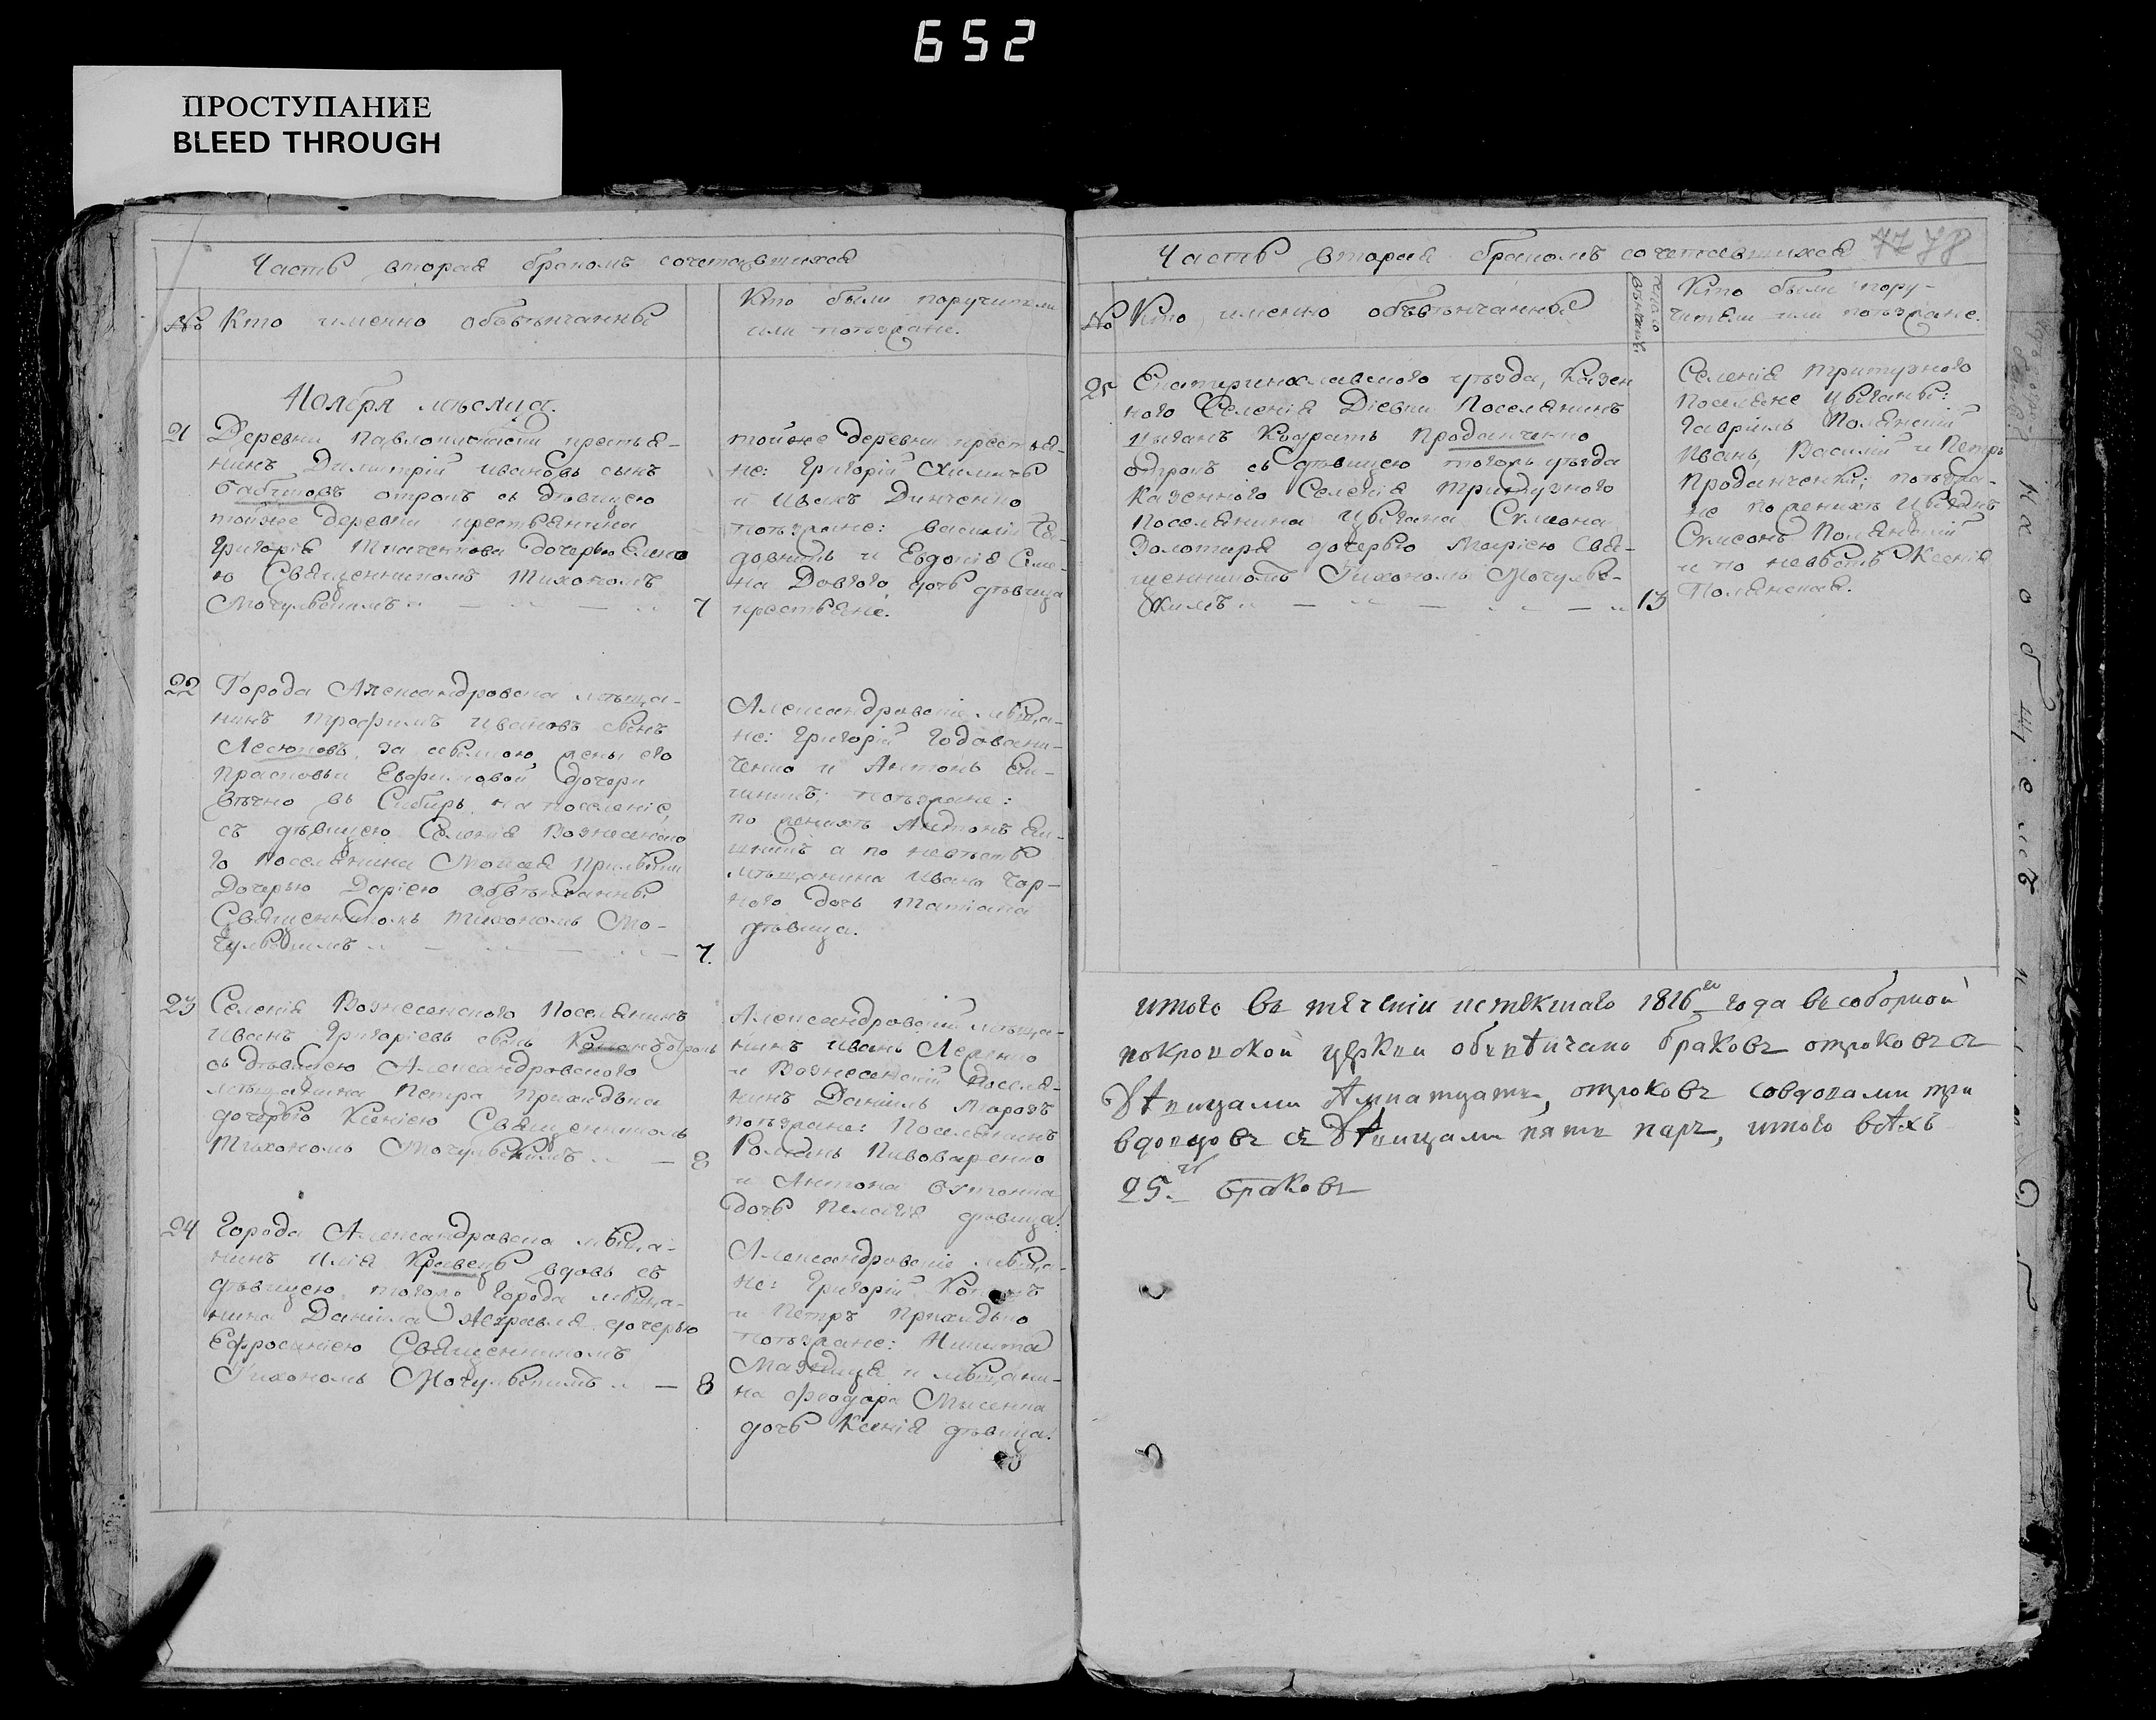 652
ПРОСТУПАНИЕ
BLEED THROUGH
Часть вторая бракомъ сочетавшихся
№ Кто именно обвѣнчанны
Кто были поручители
или поѣзжане.
Ноября мѣсяца.
21 Деревни крестья-
нинъ Димитрій Ивановъ сынъ
отрокъ съ дѣвицею
тойже деревни крестьянина
Григорія Ткаченкова дочерью
ю Священникомъ Тихономъ
Мочульскимъ 7
тойже деревни крестья-
не: Григорій
и Динченко
поѣзжане: Василій
и Евдокія Семе-
на Довгого дочь дѣвица
крестьяне.
22 Города Александровска мѣща-
нинъ Трофимъ Ивановъ сынъ
за жены его
Прасковьи Евфимовой дочери
вѣчно въ Сибирь на поселеніе,
съ дѣвицею Селенія Вознесенско
го поселянина
дочерью Даріею обвѣнчанны
Священникомъ Тихономъ Мо-
чульскимъ 7.
Александровскіе мѣща-
не: Григорій Годовани-
ченко и Антонъ
поѣзжане:
по женихѣ Антонъ
а по невѣстѣ
мѣщанина Ивана Чор-
ного дочь Татіана
дѣвица.
23 Селенія Вознесенского Поселянинъ
Иванъ Григоріевъ сынъ отрокъ
съ дѣвицею Александровского
мѣщанина Петра Приходька
дочерью Ксеніею Священникомъ
Тихономъ Мочульскимъ 8
Александровскій мѣща-
нинъ Иванъ
и Вознесенскій поселя-
нинъ Даніилъ Морозъ
поѣзжане: Поселянинъ
Романъ Пивоваренко
и Антона
дочь Пелагія дѣвица.
24 Города Александровска мѣща-
нинъ Илія Кравецъ вдовъ съ
дѣвицею тогожъ города мѣща-
нина Даніила дочерью
Ефросиніею Священникомъ
Тихономъ Мочульскимъ 8
Александровскіе мѣща-
не: Григорій
и Петръ Приходько
поѣзжане: Никита
и мѣщани-
на Феодора
дочь Ксенія дѣвица.
Часть вторая бракомъ сочетавшихся 78
№ Кто именно обвѣнчанны
Кто были пору-
чители или поѣзжане.
25 Екатеринославского уѣзда, казен
ного Селенія Діевки Поселянинъ
цыганъ Кодратъ Проданченко
отрокъ съ дѣвицею тогожъ уѣзда
казенного Селенія Тритузного
поселянина цыгана Симеона
Золотаря дочерью Маріею Свя-
щенникомъ Тихономъ Мочуль-
скимъ 13
Селенія Тритузного
поселяне цыганы:
Гавріилъ Полянскій
Иванъ, Василій и Петръ
Проданченки; поѣзжа-
не по женихѣ цыганъ
Симеонъ Полянскій
и по невѣстѣ Ксенія
Полянская.
итого въ теченіи истекшаго 1816го года въ соборной
покровской церкви обвѣнчано браковъ отроковъ съ
дѣвицами, отроковъ совдовами три
вдовцовъ съ дѣвицами пять паръ, итого всѣхъ
25. браковъ